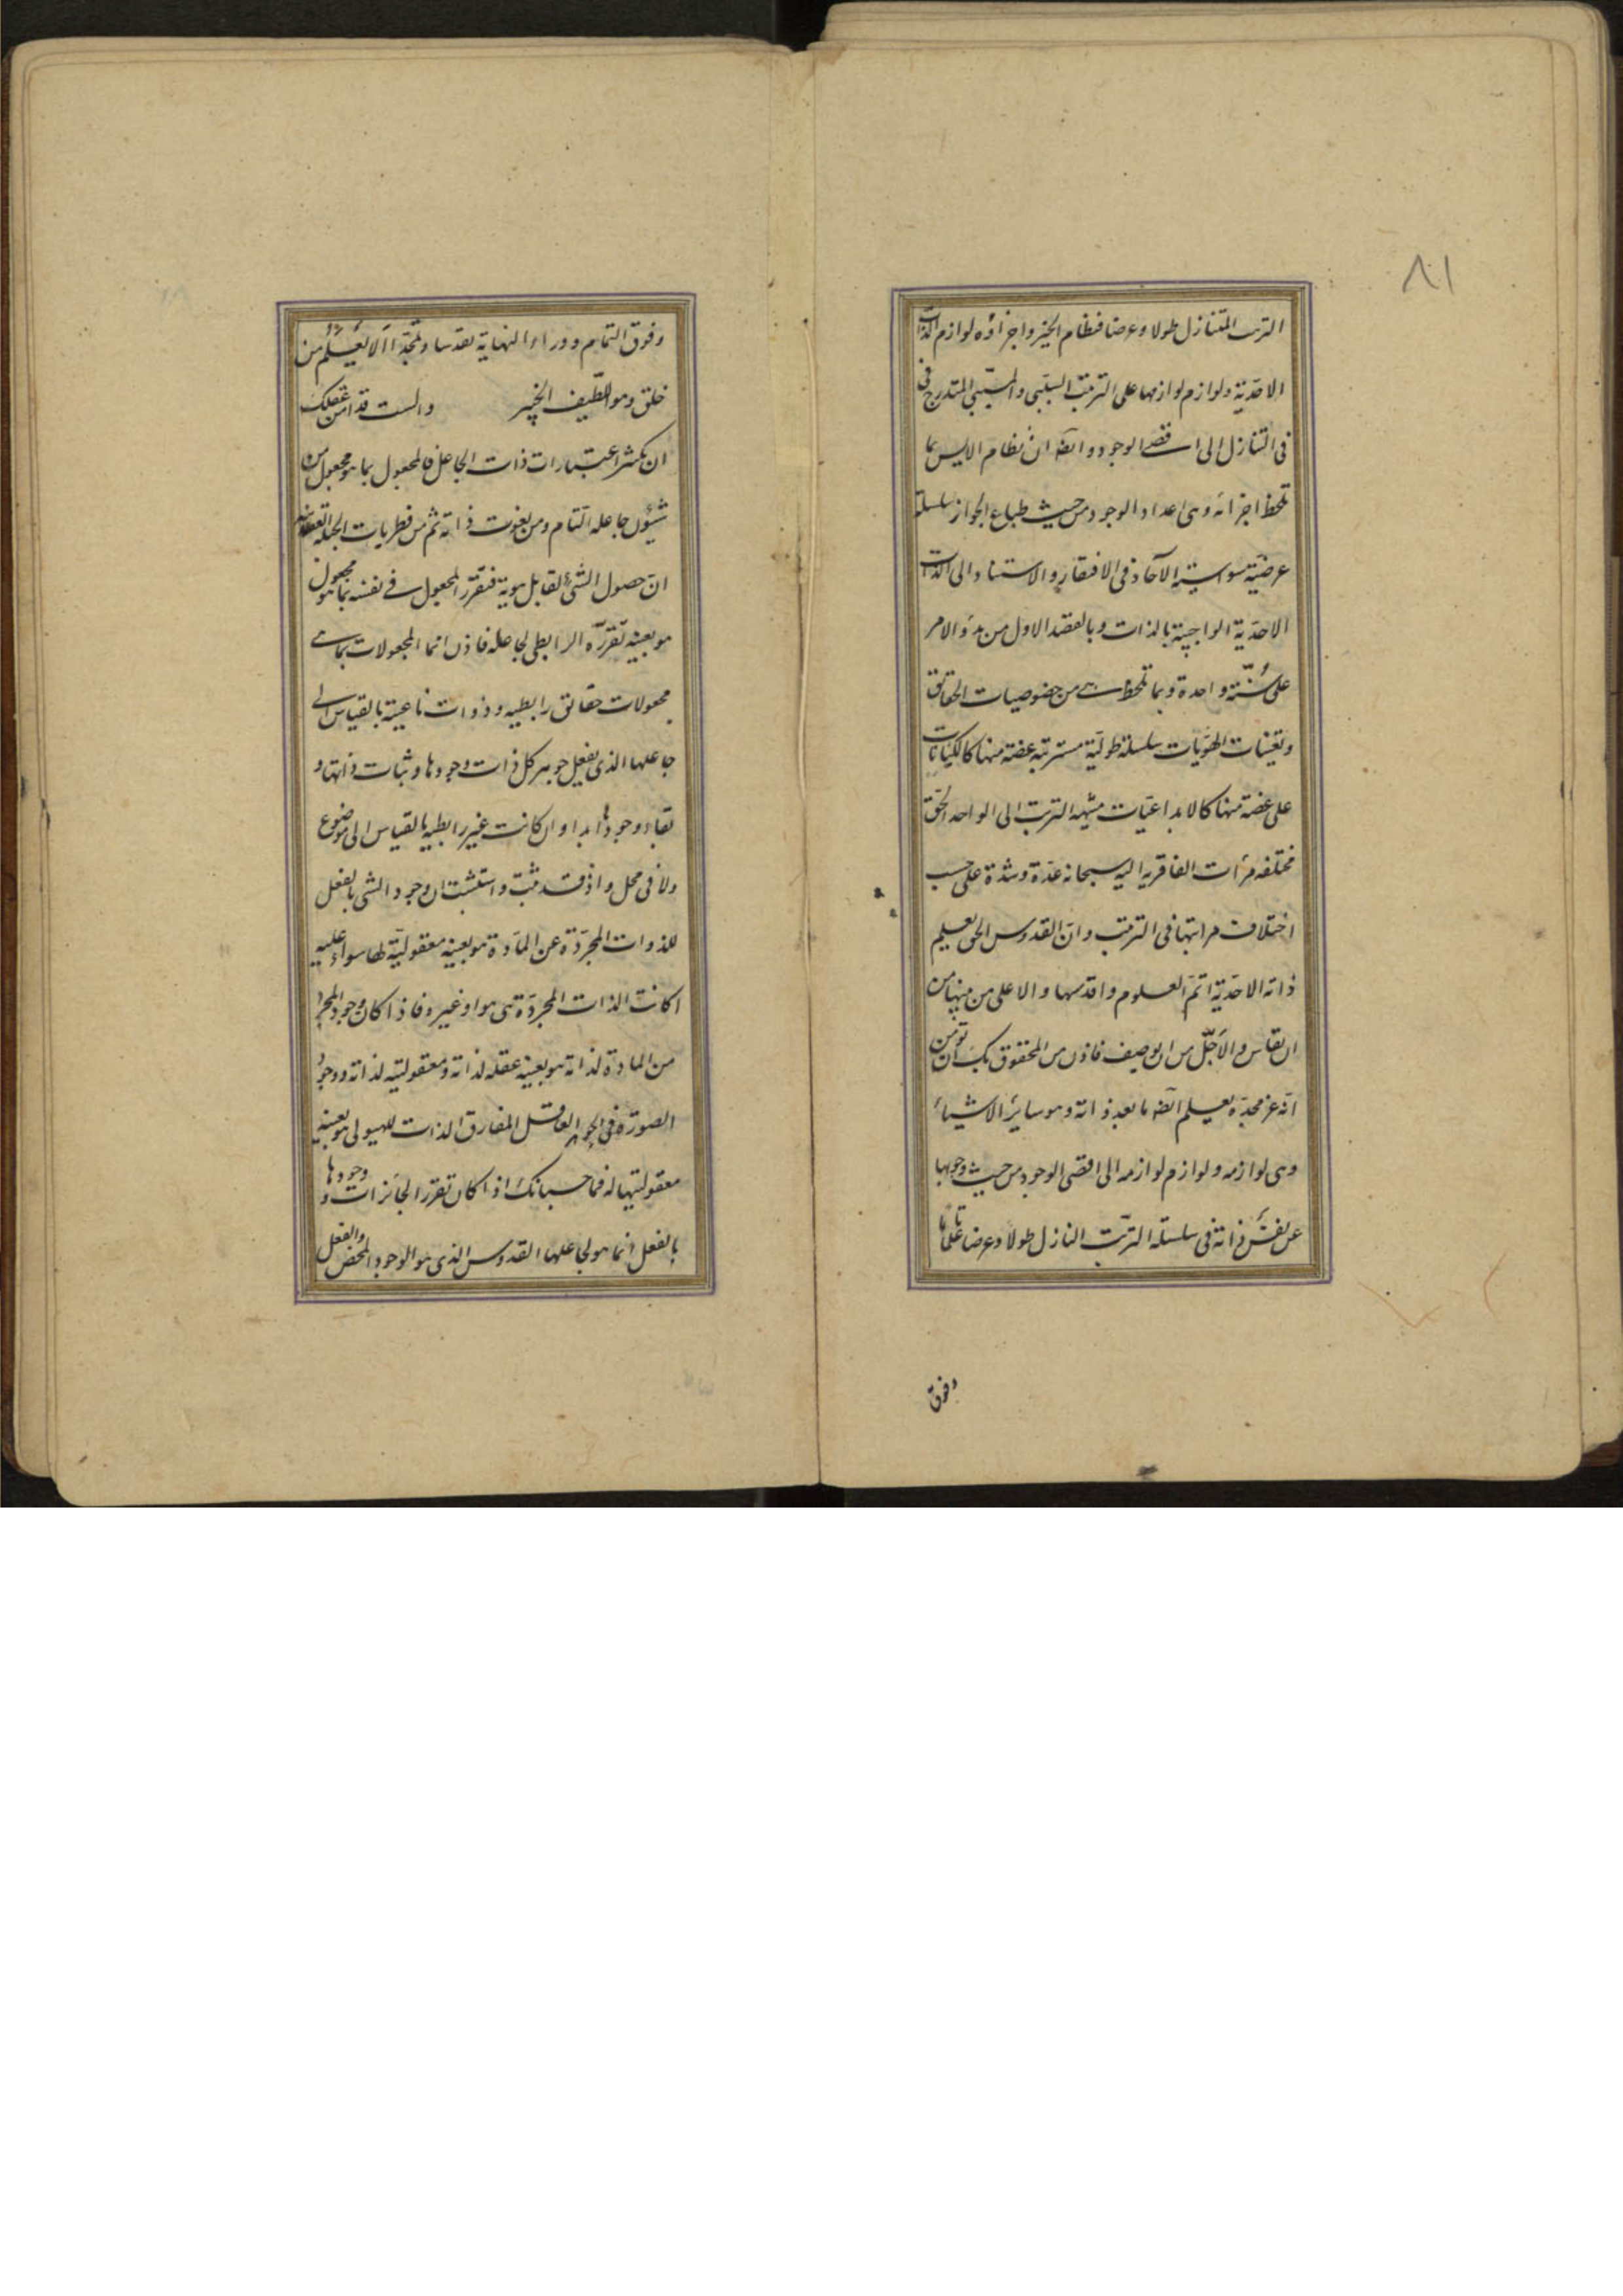 ٨١
الترتب المتنازل طولا وعرضا فنظام الخير واجزاؤه لوازم الذات
الاحدية ولوازم لوازمها على الترتب السببى والمسببى المتدرج فى
فى التنازل الى اقصى الوجود وايضا ان نظام الايس بما
تلحظ اجزائه وهى اعداد الوجود من حيث طباع الجواز سلسلة
عرضية سواسية الآحاد فى الافتقار والاستناد الى الذات
الاحدية الواجبة بالذات وبالقصد الاول من بدؤ الامر
على سنة واحدة وبما تلحظ هى من خصوصيات الحقائق
وتعينات الهويات سلسلة طولية مترتبة عضة منها كالكيانات
على عضة منها كالابداعيات منتهية الترتب الى الواحد الحق
مختلفه مرآت الفاقرية اليه سبحانه عدة وشدة على حسب
اختلاف مراتبها فى الترتب وان القدوس الحق يعلم
ذاته الاحدية اتم العلوم واقدسها والاعلى من بينها من
ان تقاس والاجل من ان يوصف فاذن من المحقوق بك ان تؤمن
انه عز مجده يعلم ايضا ما بعد ذاته وهو ساير الاشياء
وهى لوازمه ولوازم لوازمه الى اقصى الوجود من حيث وجوبها
عن نفس ذاته فى سلسلة الترتب النازل طولا وعرضا علما تاما
وفوق
وفوق التمام ووراء النهاية تقدسا وتمجدا الا يعلم من
خلق وهو اللطيف الخبير والست قد امن عقلك
ان تكثر اعتبارات ذات الجاعل فالمجعول بما هو مجعول من
شيؤن جاعله التام ومن نعوت ذاته ثم من فطريات الجبلة العقلانية
ان حصول الشىء لقابل هوية فتقرر المجعول فى نفسه بما هو مجعول
هو بعينه تقرره الرابطى لجاعله فاذن انما المجعولات بما هى
مجعولات حقائق رابطيه وذوات ناعتية بالقياس الى
جاعلها الذى يفعل جوهر كل ذات وجودها وثبات ذاتها و
بقاء وجودها ابدا وان كانت غير رابطيه بالقياس الى موضوع
ولا فى محل واذ قد ثبت واستثبت ان وجود الشى بالفعل
للذوات المجردة عن المادة هو بعينه معقوليته لها سواء عليه
اكانت الذات المجردة هى هو او غيره فاذا كان وجود المجرد
من المادة لذاته هو بعينه عقله لذاته ومعقوليته لذاته ووجود
الصورة فى الجوهر العاقل المفارق الذات للهيولى هو بعينه
معقوليتها له فما حسبانك اذا كان تقرر الجائزات و وجودها
بالفعل انما هو لجاعلها القدوس الذى هو الوجود المحض والفعل